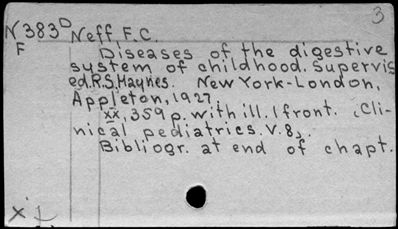 3
N 383 D Neff F.C.
F
Diseases of the digestive
system of childhood. Supervis
ed. R.S. Haynes. New York-London,
Appleton, 1927.
xx, 359 p. with ill. 1 front. (Cli-
nical pediatrics. V. 8).
Bibliogr. at end of chapt.
x